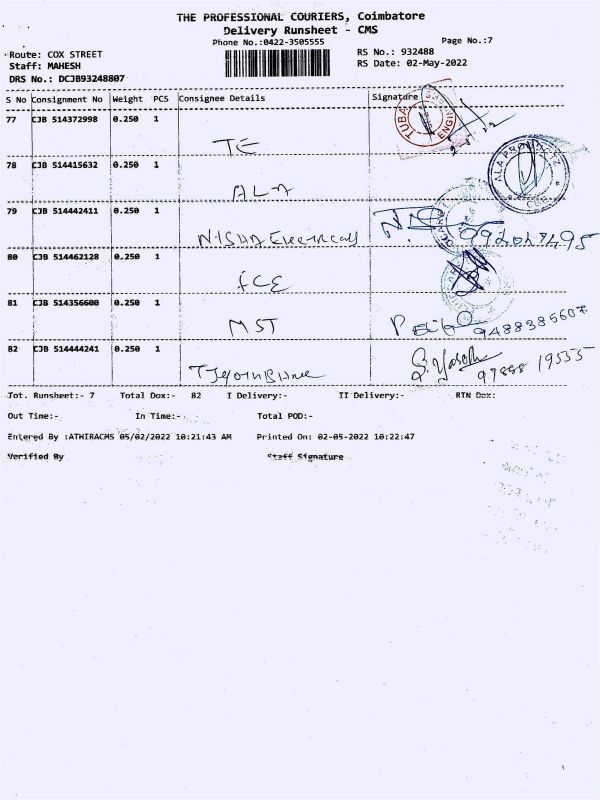 THE PROFESSIONAL COURIERS, Coimbatore
Delivery Runsheet - CMS
Phone No.:0422-3505555 Page No.:7
Route: COX STREET RS No.: 932488
Staff: MAHESH RS Date: 02-May-2022
DRS No.: DCJB93248807
S No Consignment No Weight PCS Consignee Details Signature
77 CJB 514372998 0.250 1
TE
78 CJB 514415632 0.250 1
ALA
79 CJB 514442411 0.250 1
NISHA Electricals
80 CJB 514462128 0.250 1
FCE
81 CJB 514356600 0.250 1
MST 9488385607
82 CJB 514444241 0.250 1
97888 19535
Tot. Runsheet:- 7 Total Dox:- 82 I Delivery:- II Delivery:- RTN Dox:
Out Time:- In Time:- Total POD:-
Entered By :ATHIRACMS 05/02/2022 10:21:43 AM Printed On: 02-05-2022 10:22:47
Verified By Staff Signature